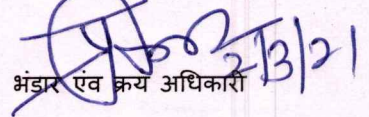 2/3/21
भंडार एंव क्रय अधिकारी